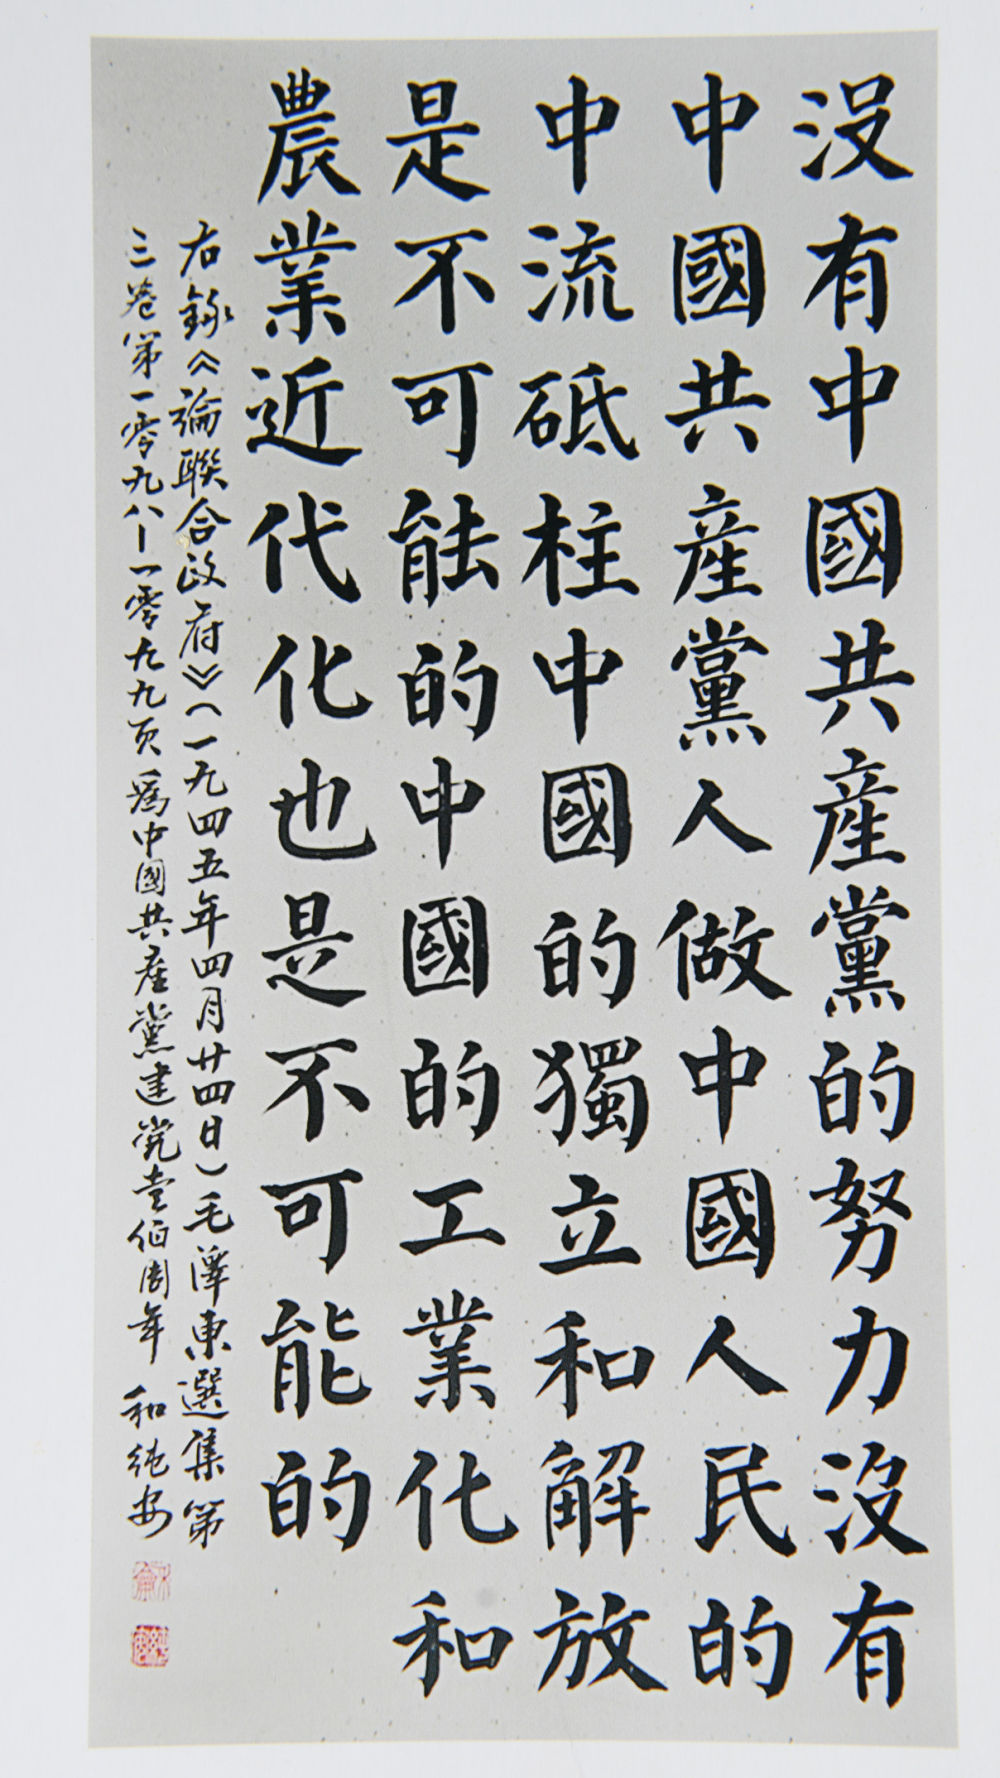 没有中國共產黨的努力没有
中國共產黨人做中國人民的
中流砥柱中國的獨立和解放
是不可能的中國的工業化和
農業近代化也是不可能的
右録《論聯合政府》(一九四五年四月廿四日)毛澤東選集第
三卷第一零九八—一零九九页爲中國共產黨建党壹佰周年 和純安